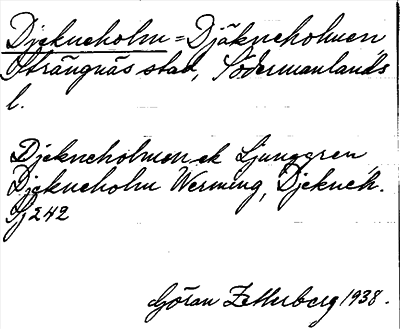 Djekneholm = Djäkneholmen,
Strängnäs stad, Södermanlands
l.
Djekneholmen ek Ljunggren,
Djekneholm Werming, Djekneh.
Sj 242
Göran Zetterberg 1938.